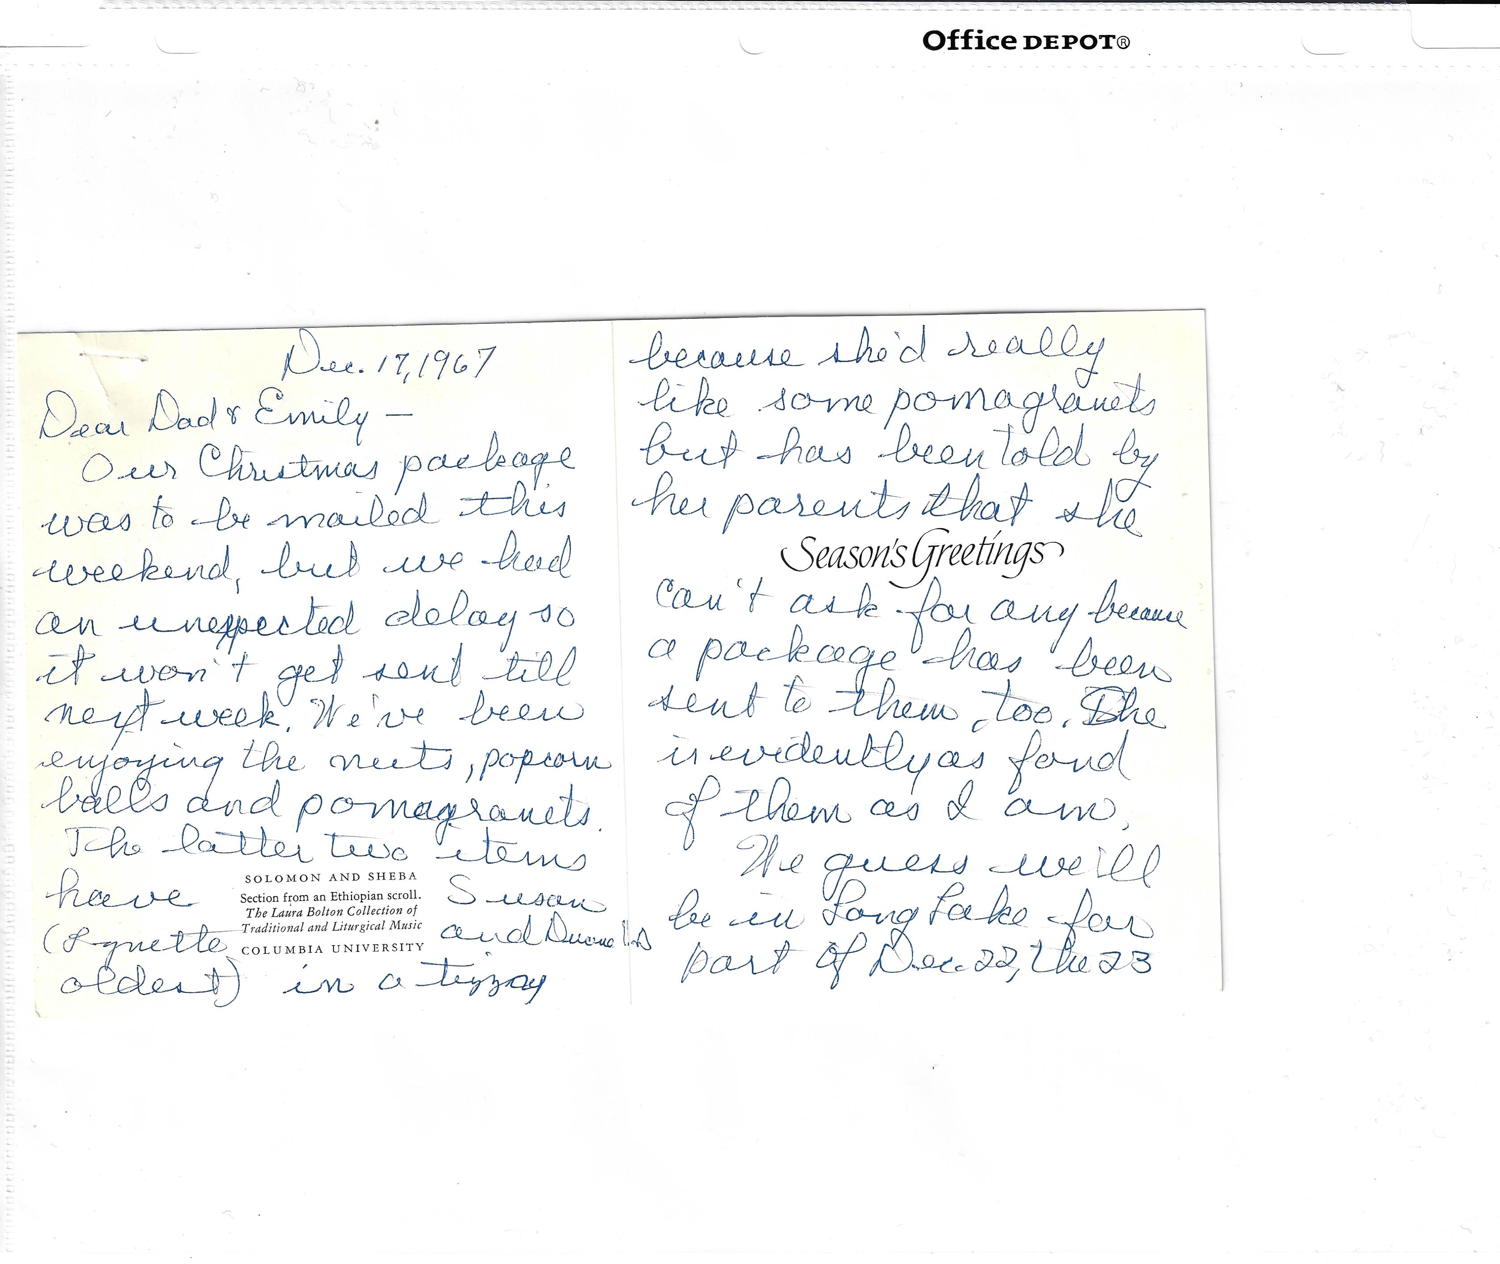 Office DEPOT®
Dec. 17, 1967
Dear Dad & Emily —
Our Christmas package
was to be mailed this
weekend, but we had
an unexpected delay so
it won't get sent till
next week. We've been
enjoying the nuts, popcorn
balls and pomagranets.
The latter two items
have Susan
(Lynette and Duane's
oldest) in a tizzay
SOLOMON AND SHEBA
Section from an Ethiopian scroll.
The Laura Bolton Collection of
Traditional and Liturgical Music
COLUMBIA UNIVERSITY
because she'd really
like some pomagranets
but has been told by
her parents that she
Season's Greetings
can't ask for any because
a package has been
sent to them, too. She
is evidently as fond
of them as I am.
We guess we'll
be in Long Lake for
part of Dec. 22, the 23